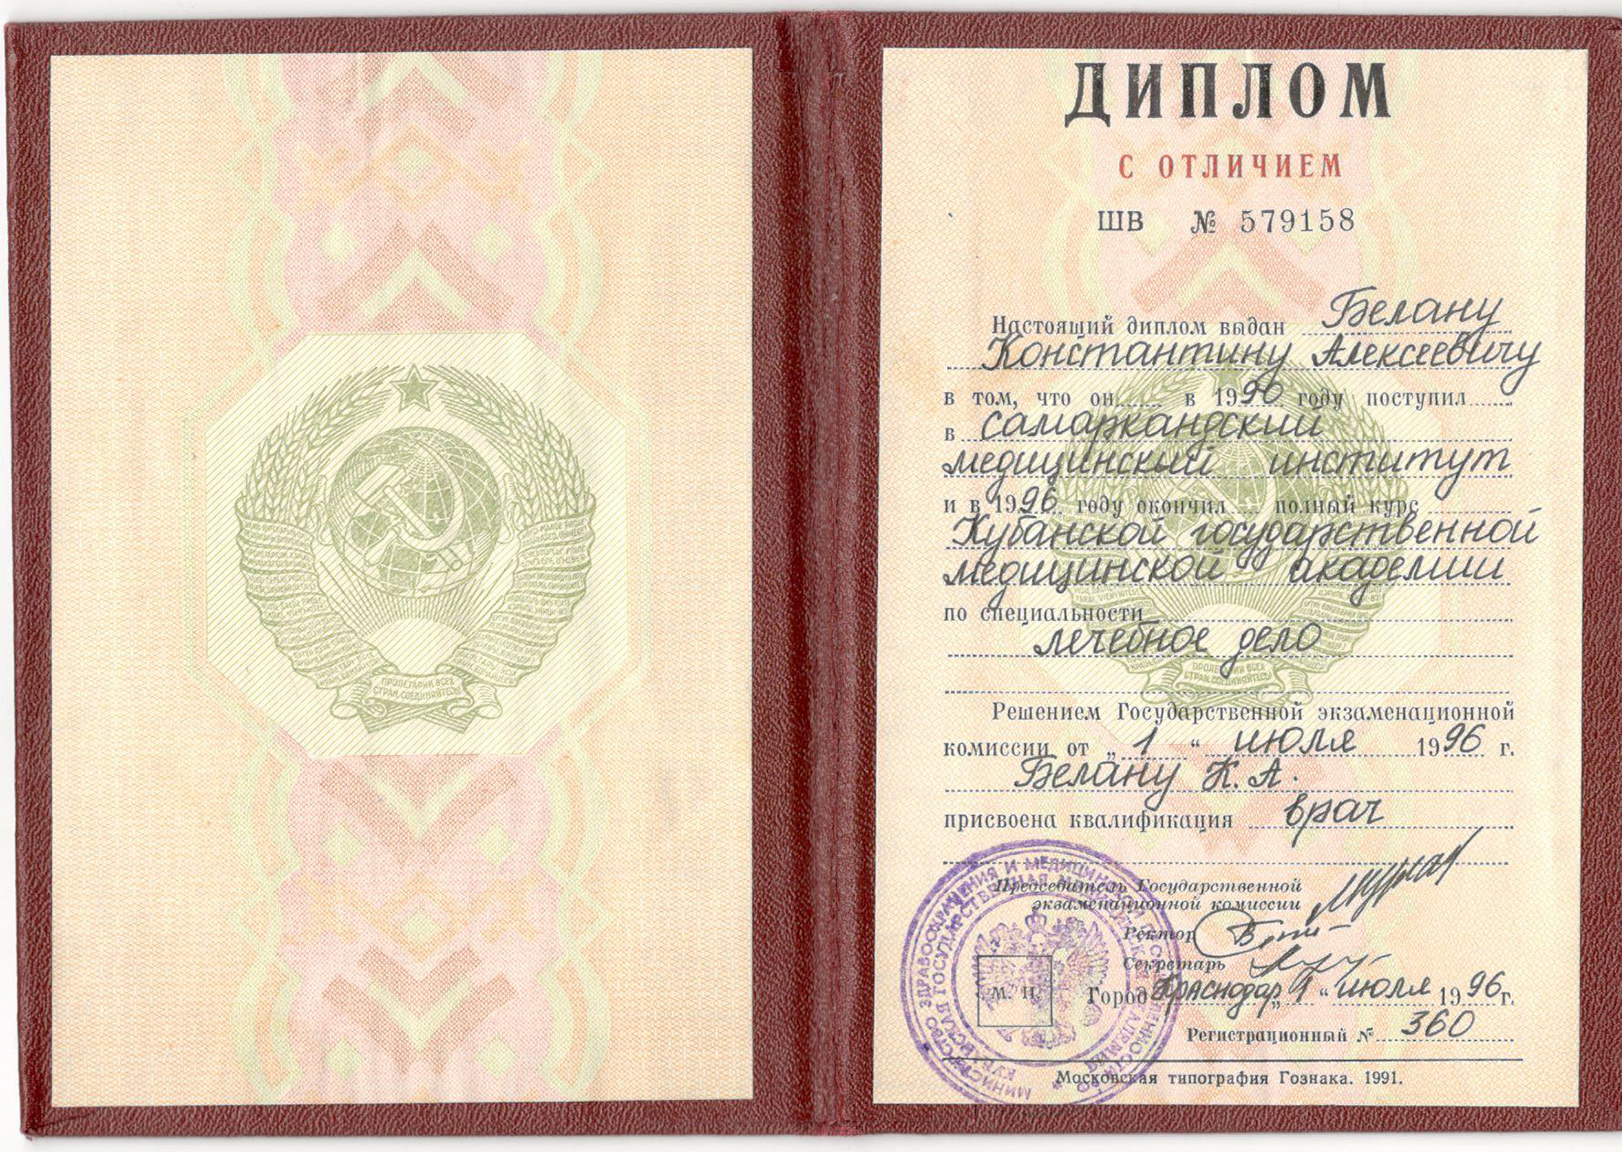 ПРОЛЕТАРИИ ВСЕХ
СТРАН, СОЕДИНЯЙТЕСЬ!
ДИПЛОМ
С ОТЛИЧИЕМ
ШВ № 579158
Настоящий диплом выдан Белану
Константину Алексеевичу
в том, что он в 1990 году поступил
в Самаркандский
медицинский институт
и в 1996 году окончил полный курс
Кубанской государственной
медицинской академии
по специальности
лечебное дело
Решением Государственной экзаменационной
комиссии от „1“ июля 1996 г.
Белану К. А.
присвоена квалификация врач
Председатель Государственной
экзаменационной комиссии
Ректор
Секретарь
М. П.
Город Краснодар „1“ июля 1996 г.
Регистрационный № 360
Московская типография Гознака. 1991.